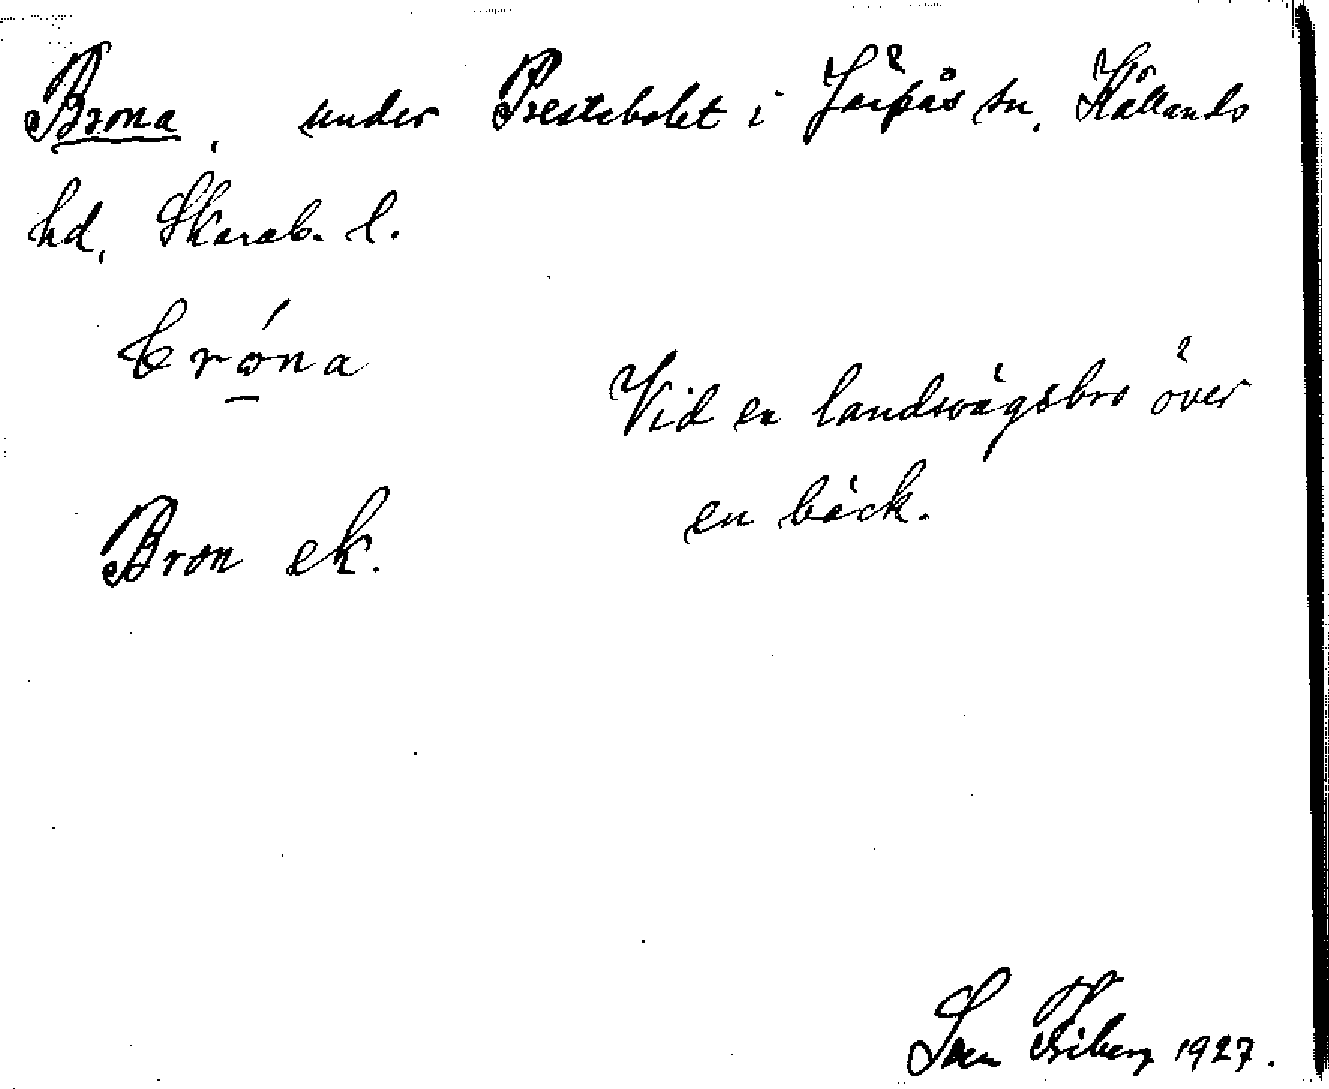 Brona, under Prestebolet i Järpås sn, Kållands
hd, Skarab. l.
bróna
Vid en landsvägsbro över
en bäck.
Bron ek.
Sven Friberg 1927.